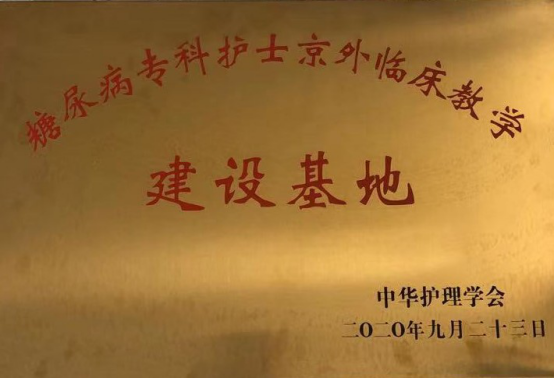 糖尿病专科护士京外临床教学
建设基地
中华护理学会
二〇二〇年九月二十三日